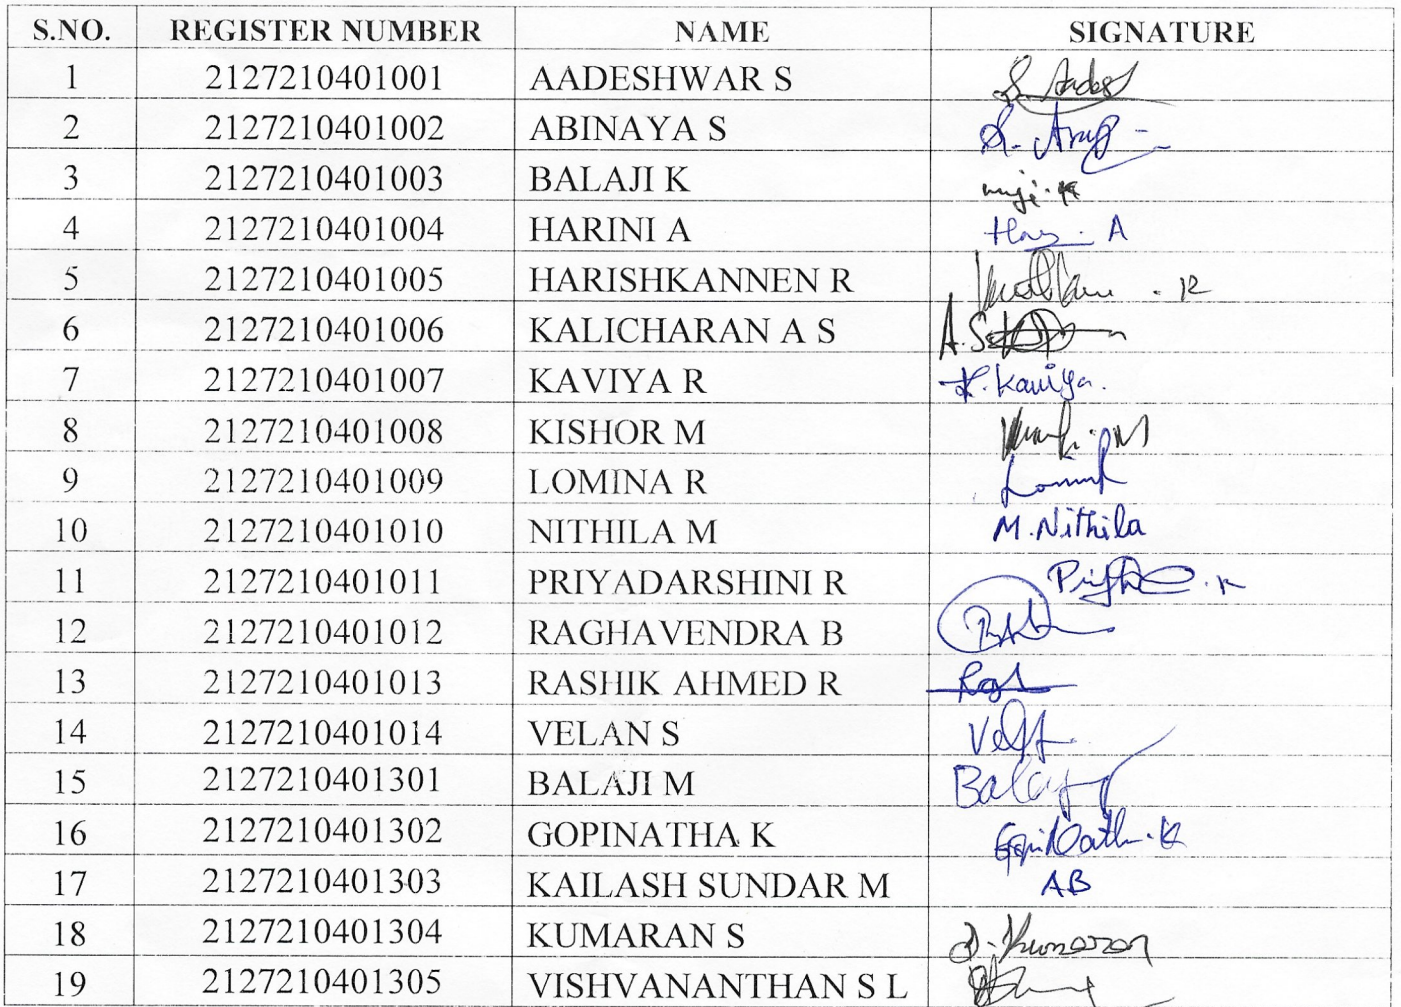 S.NO. REGISTER NUMBER NAME SIGNATURE
1 2127210401001 AADESHWAR S
2 2127210401002 ABINAYA S
3 2127210401003 BALAJI K
4 2127210401004 HARINI A A
5 2127210401005 HARISHKANNEN R . R
6 2127210401006 KALICHARAN A S
7 2127210401007 KAVIYA R R. Kaviya.
8 2127210401008 KISHOR M
9 2127210401009 LOMINA R
10 2127210401010 NITHILA M M. Nithila
11 2127210401011 PRIYADARSHINI R
12 2127210401012 RAGHAVENDRA B
13 2127210401013 RASHIK AHMED R
14 2127210401014 VELAN S
15 2127210401301 BALAJI M
16 2127210401302 GOPINATHA K GopiNath. K
17 2127210401303 KAILASH SUNDAR M AB
18 2127210401304 KUMARAN S S. Kumaran
19 2127210401305 VISHVANANTHAN S L